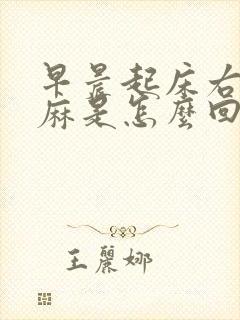 早晨起床右
麻是怎麼回
王麗娜